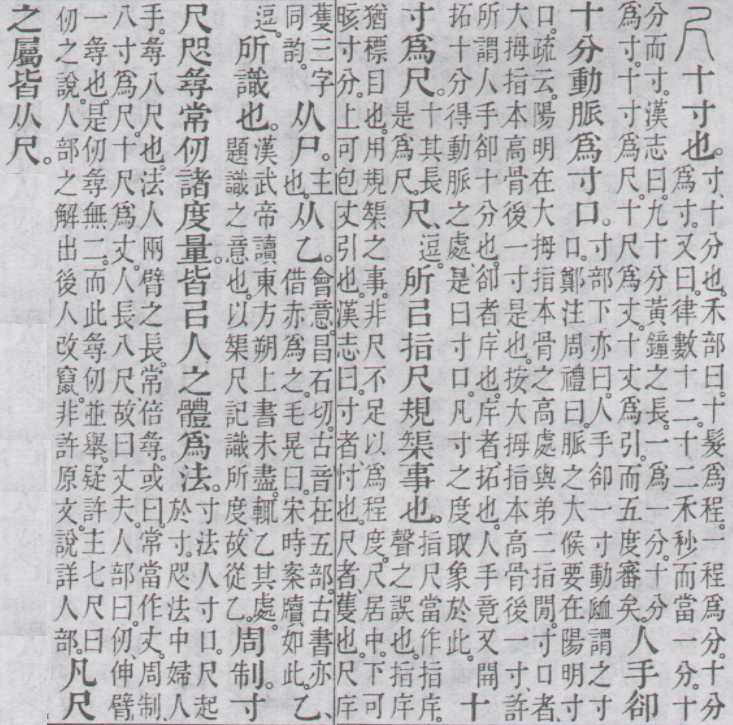 尺十寸也。寸十分也。禾部曰。十髮爲程。一程爲分。十分
爲寸。又曰。律數十二。十二禾秒而當一分。十
分而寸。漢志曰。九十分黃鐘之長。一爲一分。十分
爲寸。十寸爲尺。十尺爲丈。十丈爲引。而五度審矣。人手卻
十分動脈爲寸口。寸部下亦曰。人手卻一寸動𧖴謂之寸
口。鄭注周禮曰。脈之大候要在陽明寸
口。疏云。陽明在大拇指本骨之高處與弟二指閒。寸口者、
大拇指本高骨後一寸是也。按大拇指本高骨後一寸、許
所謂人手卻十分也。卻者、庌也。庌者、拓也。人手竟又開
拓十分得動脈之處。是曰寸口。凡寸之度取象於此。十
寸爲尺。十其長
是爲尺。尺、逗。所㠯指尺規榘事也。指尺當作指庌。
聲之誤也。指庌
猶標目也。用規榘之事。非尺不足以爲程度。尺居中。下可
晐寸分。上可包丈引也。漢志曰。寸者、忖也。尺者、蒦也。尺庌
蒦三字
同韵。从尸。主也。从乙。會意。昌石切。古音在五部。古書亦
借赤爲之。毛晃曰。宋時案牘如此。乙、
逗。所識也。漢武帝讀東方朔上書未盡。輒乙其處。
題識之意也。以榘尺記識所度故從乙。周制。寸
尺咫尋常仞諸度量皆㠯人之體爲法。寸法人寸口。尺起
於寸。咫法中婦人
手。尋八尺也。法人兩臂之長。常倍尋。或曰常當作丈。周制
八寸爲尺。十尺爲丈。人長八尺。故曰丈夫。人部曰。仞、伸臂
一尋也。是仞尋無二。而此尋仞並舉。疑許主七尺曰
仞之說。人部之解出後人改竄。非許原文。說詳人部。凡尺
之屬皆从尺。